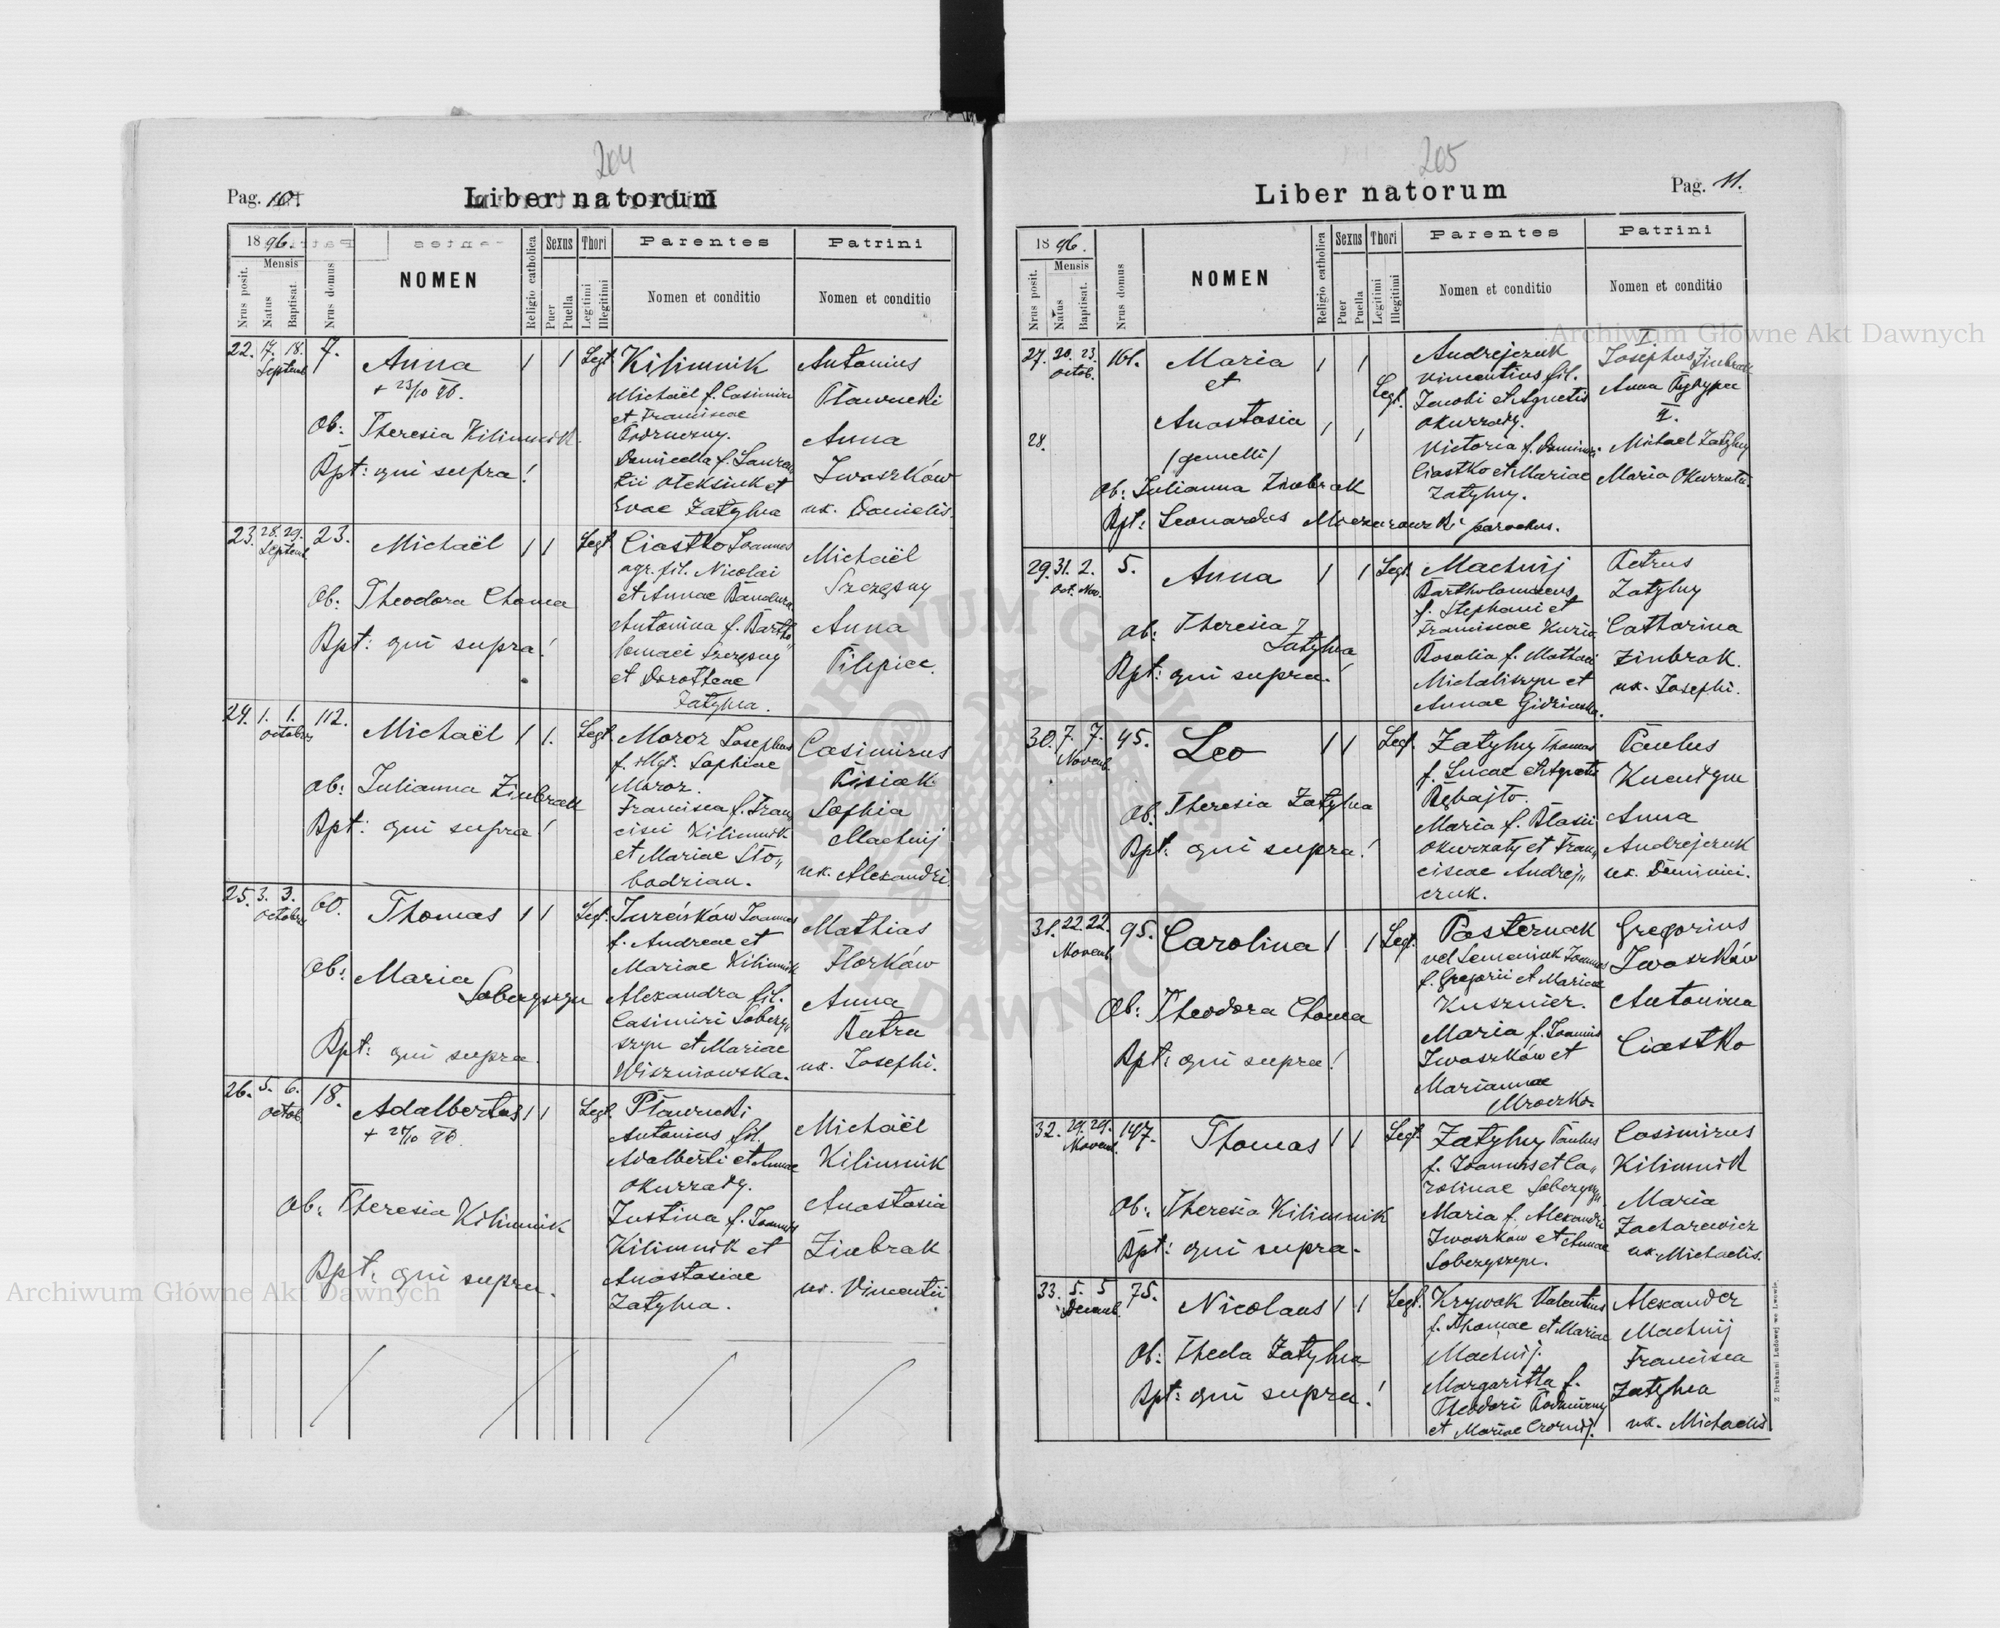 204
Pag. 10.
Liber natorum
1896.
Mensis
Nrus posit.
Natus
Baptisat.
Nrus domus
NOMEN
Religio catholica
Sexus
Puer
Puella
Thori
Legitimi
Illegitimi
Parentes
Nomen et conditio
Patrini
Nomen et conditio
22. 17. 18. 7. Anna 1 1 Legt. Kilimnik Antonius
Septemb.
+ 23/10 96.
Michaël f. Casimiri Pławucki
et Franciscae
Ob: Theresia Kilimnik. Podzuczny. Anna
Bpt: qui supra! Iwaszków
Oleksiuk et
Evae Zatylna ux. Danielis.
23. 28. 29. 23. Michaël 1 1 Legt Ciastko Joannes Michaël
Septemb.
agr. fil. Nicolai Szczęsny
Ob: Theodora Choma et Annae Bandura
Antonina f. Bartho„ Anna
Bpt: qui supra! lomaei Szczęsny
et Dorotheae Pilipiec.
Zatylna.
24. 1. 1. 112. Michaël 1 1. Legt. Moroz Josephus Casimirus
Octobris
f. illgt. Sophiae Pisiak
Ob: Julianna Zinbrak Moroz. Sophia
Francisca f. Fran„
Bpt: qui supra! cisci Kilimnik Machnij
et Mariae Sło„
bodzian. ux. Alexandri.
25. 3. 3. 60. Thomas 1 1 Legt. Joannes Mathias
Octobris
f. Andreae et
Ob: Maria Mariae Kilimnik Florków
Soberyszyn Alexandra fil. Anna
Casimiri Sobery„ Butra
Bpt: qui supra. szyn et Mariae
Wiszniowska. ux. Josephi.
26. 5. 6. 18. Adalbertus 1 1 Legt. Pławucki Michaël
Octob.
+ 27/10 96.
Antonius fil.
Adalberti et Annae Kilimnik
Okurzaty.
Ob: Theresia Kilimnik Justina f. Joannis Anastasia
Kilimnik et Zinbrak
Bpt: qui supra. Anastasiae
Zatylna. ux. Vincentii
205
Liber natorum
Pag. 11.
1896.
Mensis
Nrus posit.
Natus
Baptisat.
Nrus domus
NOMEN
Religio catholica
Sexus
Puer
Puella
Thori
Legitimi
Illegitimi
Parentes
Nomen et conditio
Patrini
Nomen et conditio
27. 20. 23. 161. Maria 1 1 Legt. Andrejczuk I.
Octob.
et Vincentius fil. Josephus Zinbrak
Jacobi et Agnetis Anna
Anastasia 1 1 Okurzaty. II.
28. /gemelli/ Victoria f. Dominici Michael Zatylny
Ciastko et Mariae Maria Okurzata.
Ob: Julianna Zinbrak Zatylny.
Bpt: Leonardus parochus.
29. 31. 2. 5. Anna 1 1 Legt. Machnij Petrus
Oct. Nov.
Bartholomaeus Zatylny
f. Stephani et
Ob: Theresia Franciscae Catharina
Zatylna Rosalia f. Mathaei Zinbrak.
Bpt: qui supra! Michaliszyn et
Annae ux. Josephi.
30. 7. 7. 45. Leo 1 1 Legt. Zatylny Thomas Paulus
Novemb.
f. Lucae et Agnetis
Ob: Theresia Zatylna Rębajło.
Maria f. Blasii Anna
Bpt: qui supra! Okurzaty et Fran„ Andrejczuk
ciscae Andrej„ ux. Dominici.
czuk.
31. 22. 22. 95. Carolina 1 1 Legt. Pasternak Gregorius
Novemb.
vel Semeniuk Joannes Iwaszków
f. Gregorii et Mariae
Ob: Theodora Choma Kusznier. Antonina
Maria f. Joannis
Bpt: qui supra! Iwaszków et Ciastko
Mariannae
Mroczko.
32. 29. 29. 147. Thomas 1 1 Legt. Zatylny Paulus Casimirus
Novemb.
f. Joannis et Ca„ Kilimnik
Ob: Theresia Kilimnik rolinae Soberyszyn. Maria
Maria f. Alexandri Zacharewicz
Bpt: qui supra. Iwaszków et Annae ux. Michaelis.
Soberyszyn.
33. 5. 5 75. Nicolaus 1 1 Legt. Krywak Valentinus Alexander
Decemb.
f. Thomae et Mariae Machnij
Ob: Thecla Zatylna Machnij. Francisca
Margaritha f. Zatylna
Bpt: qui supra! Theodori
et Mariae Czornij. ux. Michaelis.
Z Drukarni Ludowej we Lwowie.
Archiwum Główne Akt Dawnych
Archiwum Główne Akt Dawnych
ARCHIWUM GŁÓWNE AKT DAWNYCH